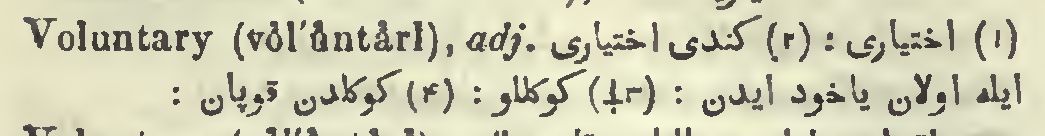 Voluntary (vŏl'ŭntărĭ), adj. (١) اختیاری : (٢) کندی اختیاری
ایله اولان یاخود ایدن : (٣) کوکللو : (۴) کوکلدن قوپان :